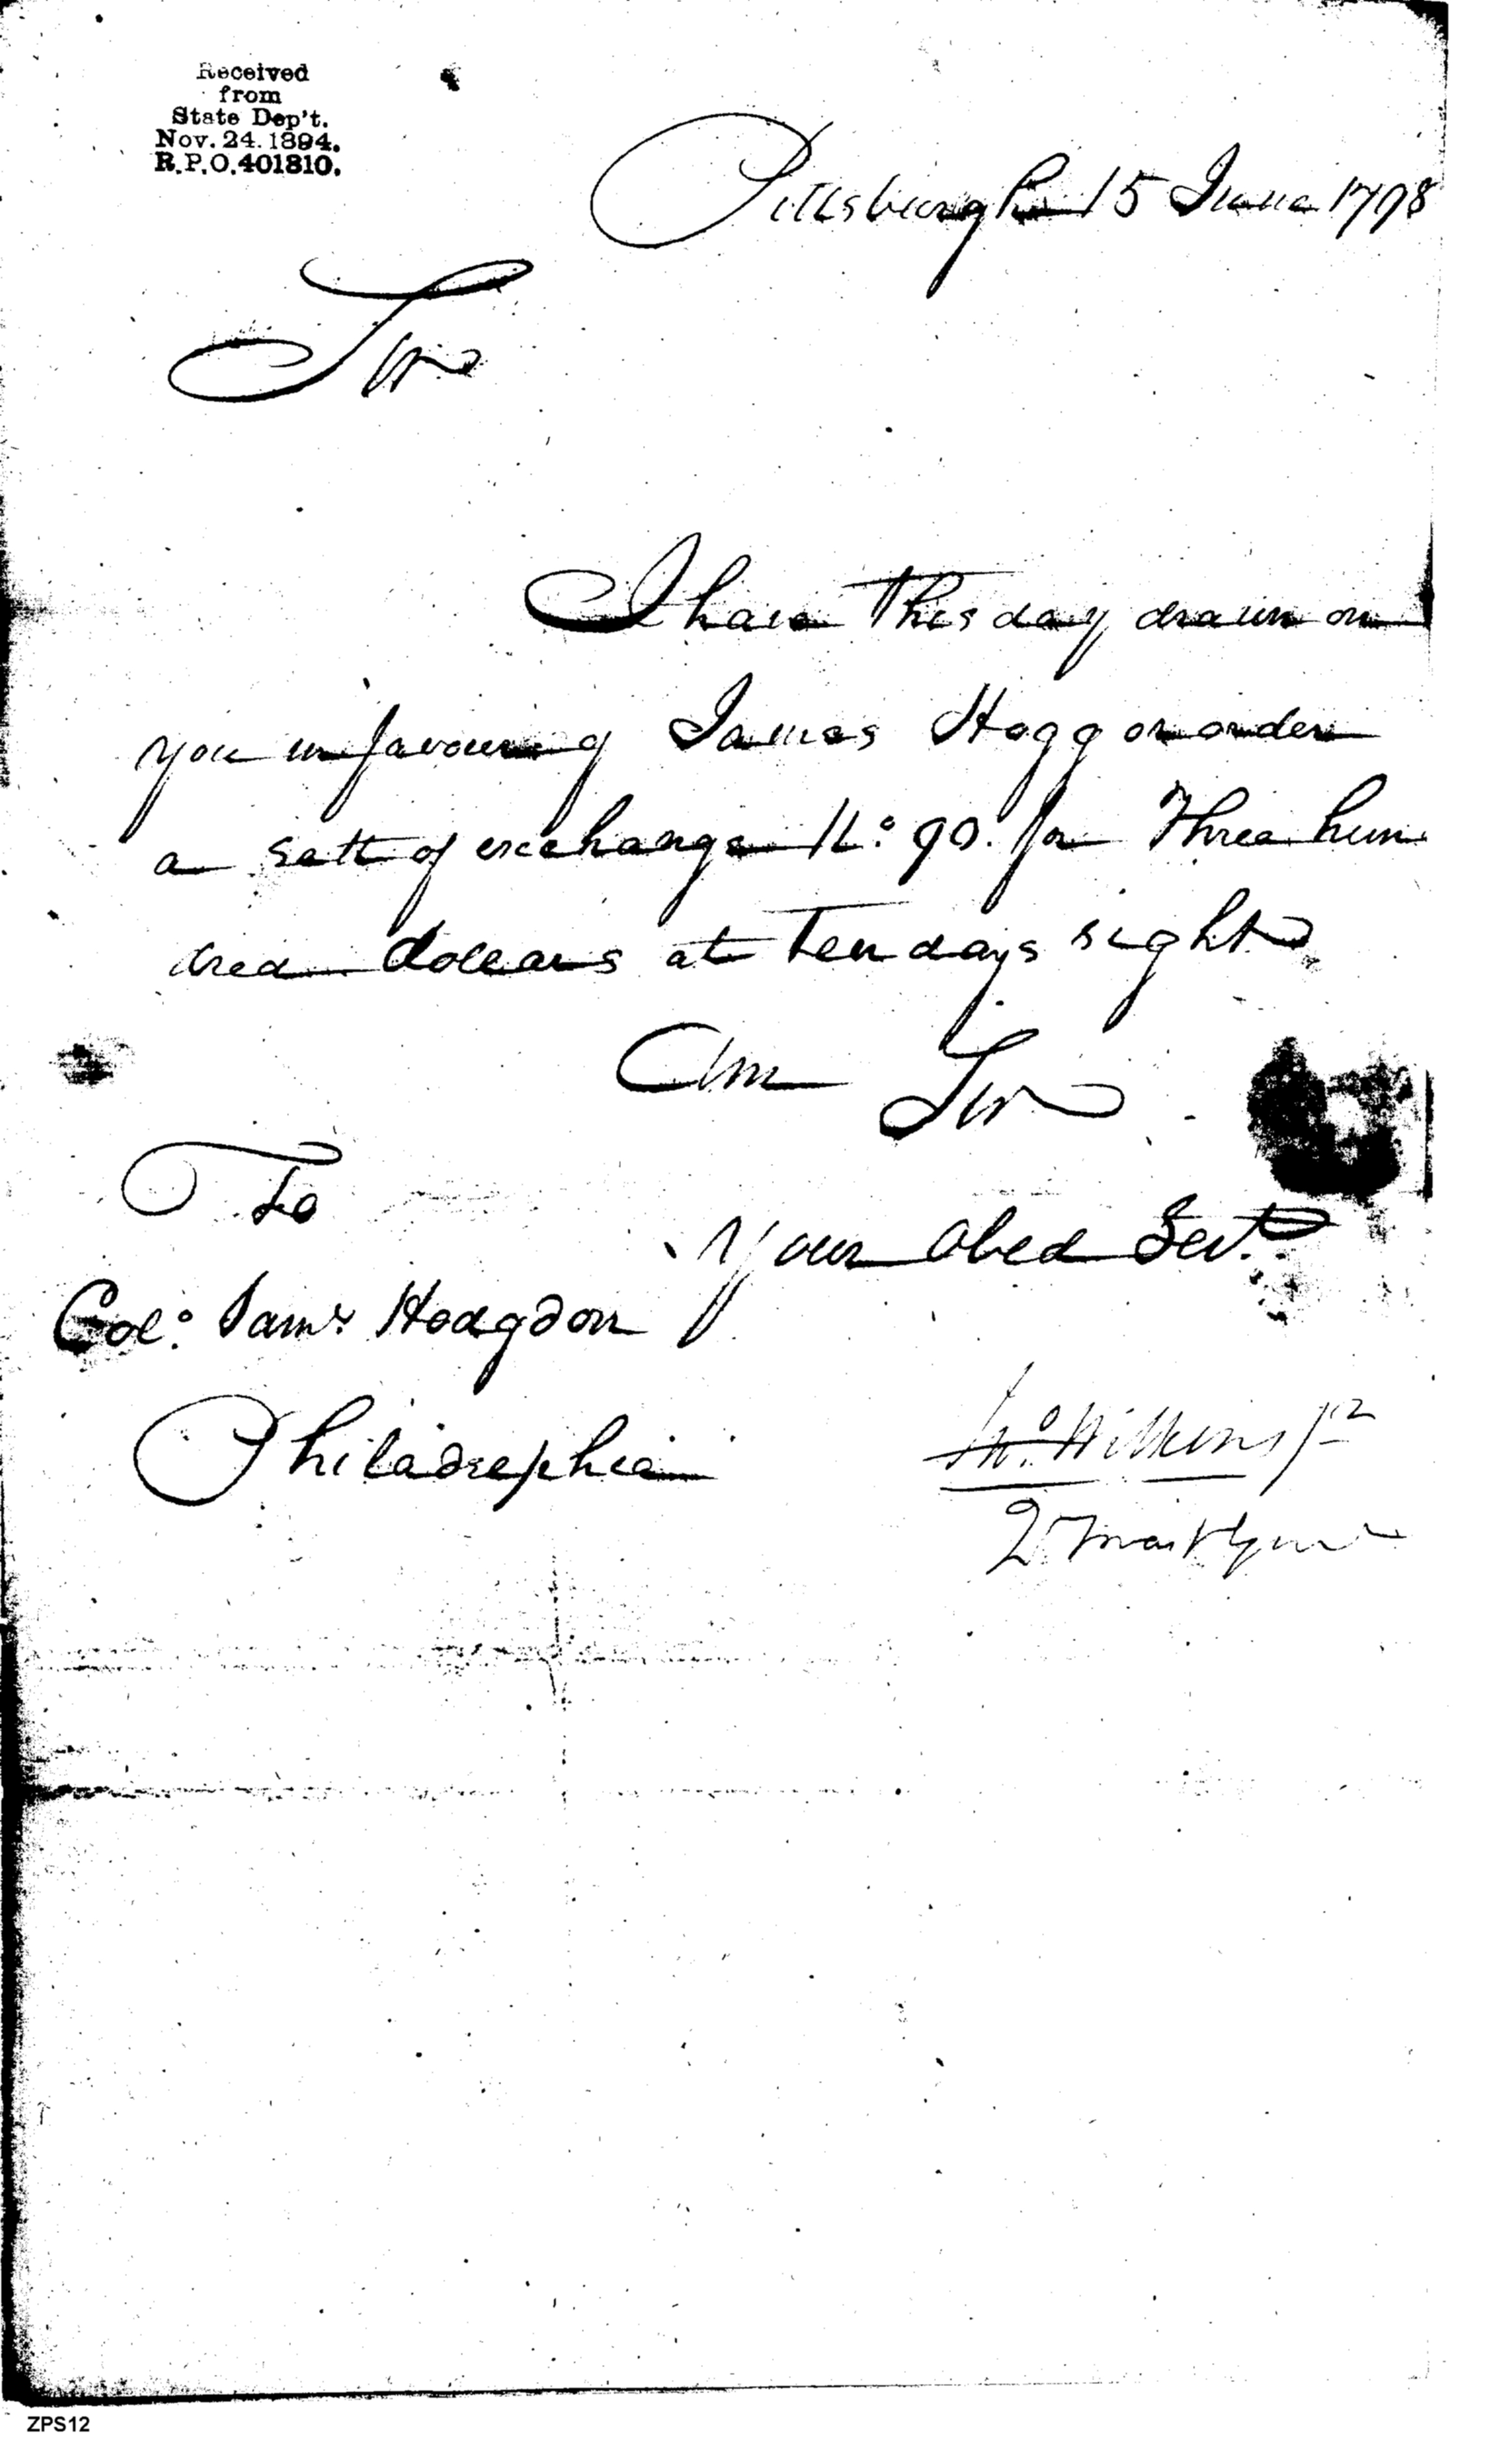 Received
from
State Dep't.
Nov. 24. 1894.
R.P.O. 401810.
Pittsburgh 15 June 1798
Sir
I have this day drawn on
you in favour of James Hogg or order
a sett of exchange No. 90. for Three hun
dred dollars at Ten days sight
Am Sir
To
Your Obed Servt.
Colo. Saml Hodgdon
Philadelphia
Jno. Wilkins Jr
ZPS12